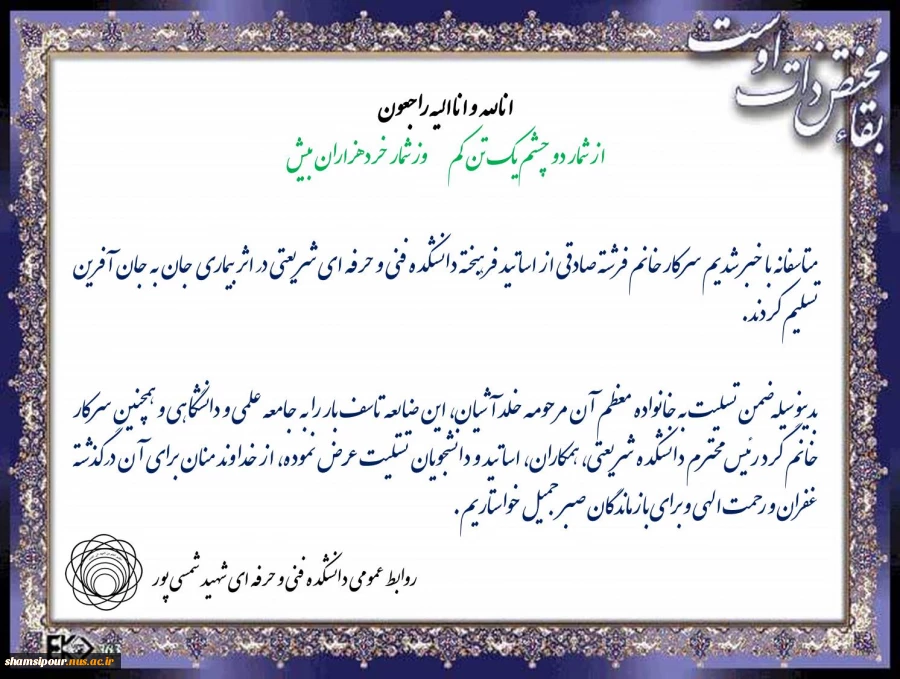 بقاء مختص ذات اوست
انالله و اناالیه راجعون
از شمار دو چشم یک تن کم وز شمار خرد هزاران بیش
متاسفانه با خبر شدیم سرکار خانم فرشته صادقی از اساتید فرهیخته دانشکده فنی و حرفه ای شریعتی در اثر بیماری جان به جان آفرین
تسلیم کردند.
بدینوسیله ضمن تسلیت به خانواده معظم آن مرحومه خلد آشیان، این ضایعه تاسف بار را به جامعه علمی و دانشگاهی و همچنین سرکار
خانم گرد رئیس محترم دانشکده شریعتی، همکاران، اساتید و دانشجویان تسلیت عرض نموده، از خداوند منان برای آن درگذشته
غفران و رحمت الهی و برای بازماندگان صبر جمیل خواستاریم.
روابط عمومی دانشکده فنی و حرفه ای شهید شمسی پور
shamsipour.nus.ac.ir